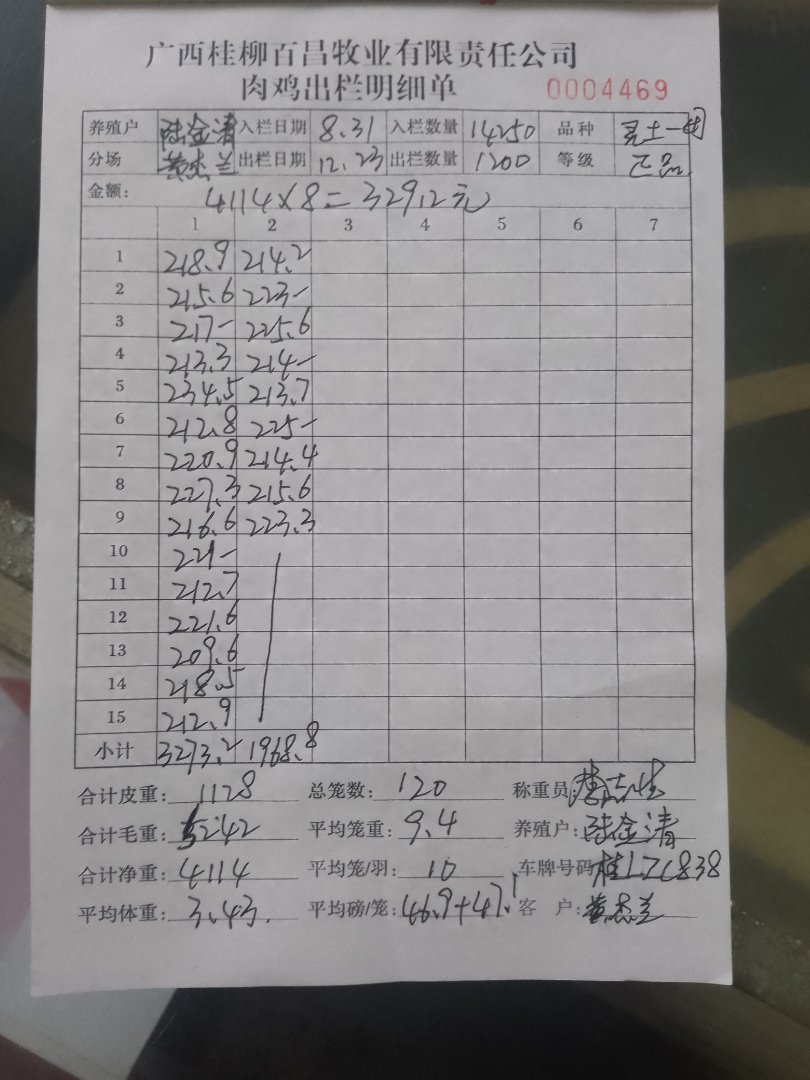 广西桂柳百昌牧业有限责任公司
肉鸡出栏明细单 0004469
养殖户 陆金清 入栏日期 8.31 入栏数量 14250 品种 灵土一
分场 黄杰兰 出栏日期 12.23 出栏数量 1200 等级 正品
金额: 4114×8=32912元
1 2 3 4 5 6 7
1 218.9 214.2
2 215.6 223-
3 217- 225.6
4 213.3 214-
5 234.5 213.7
6 212.8 225-
7 220.9 214.4
8 227.3 215.6
9 216.6 223.3
10 221-
11 212.7
12 221.6
13 209.6
14 218.5
15 212.9
小计 3273.2 1968.8
合计皮重: 1128 总笼数: 120 称重员:
合计毛重: 5242 平均笼重: 9.4 养殖户: 陆金清
合计净重: 4114 平均笼/羽: 10 车牌号码 桂LZC838
平均体重: 3.43. 平均磅/笼: 46.9+47.1 客 户: 黄杰兰